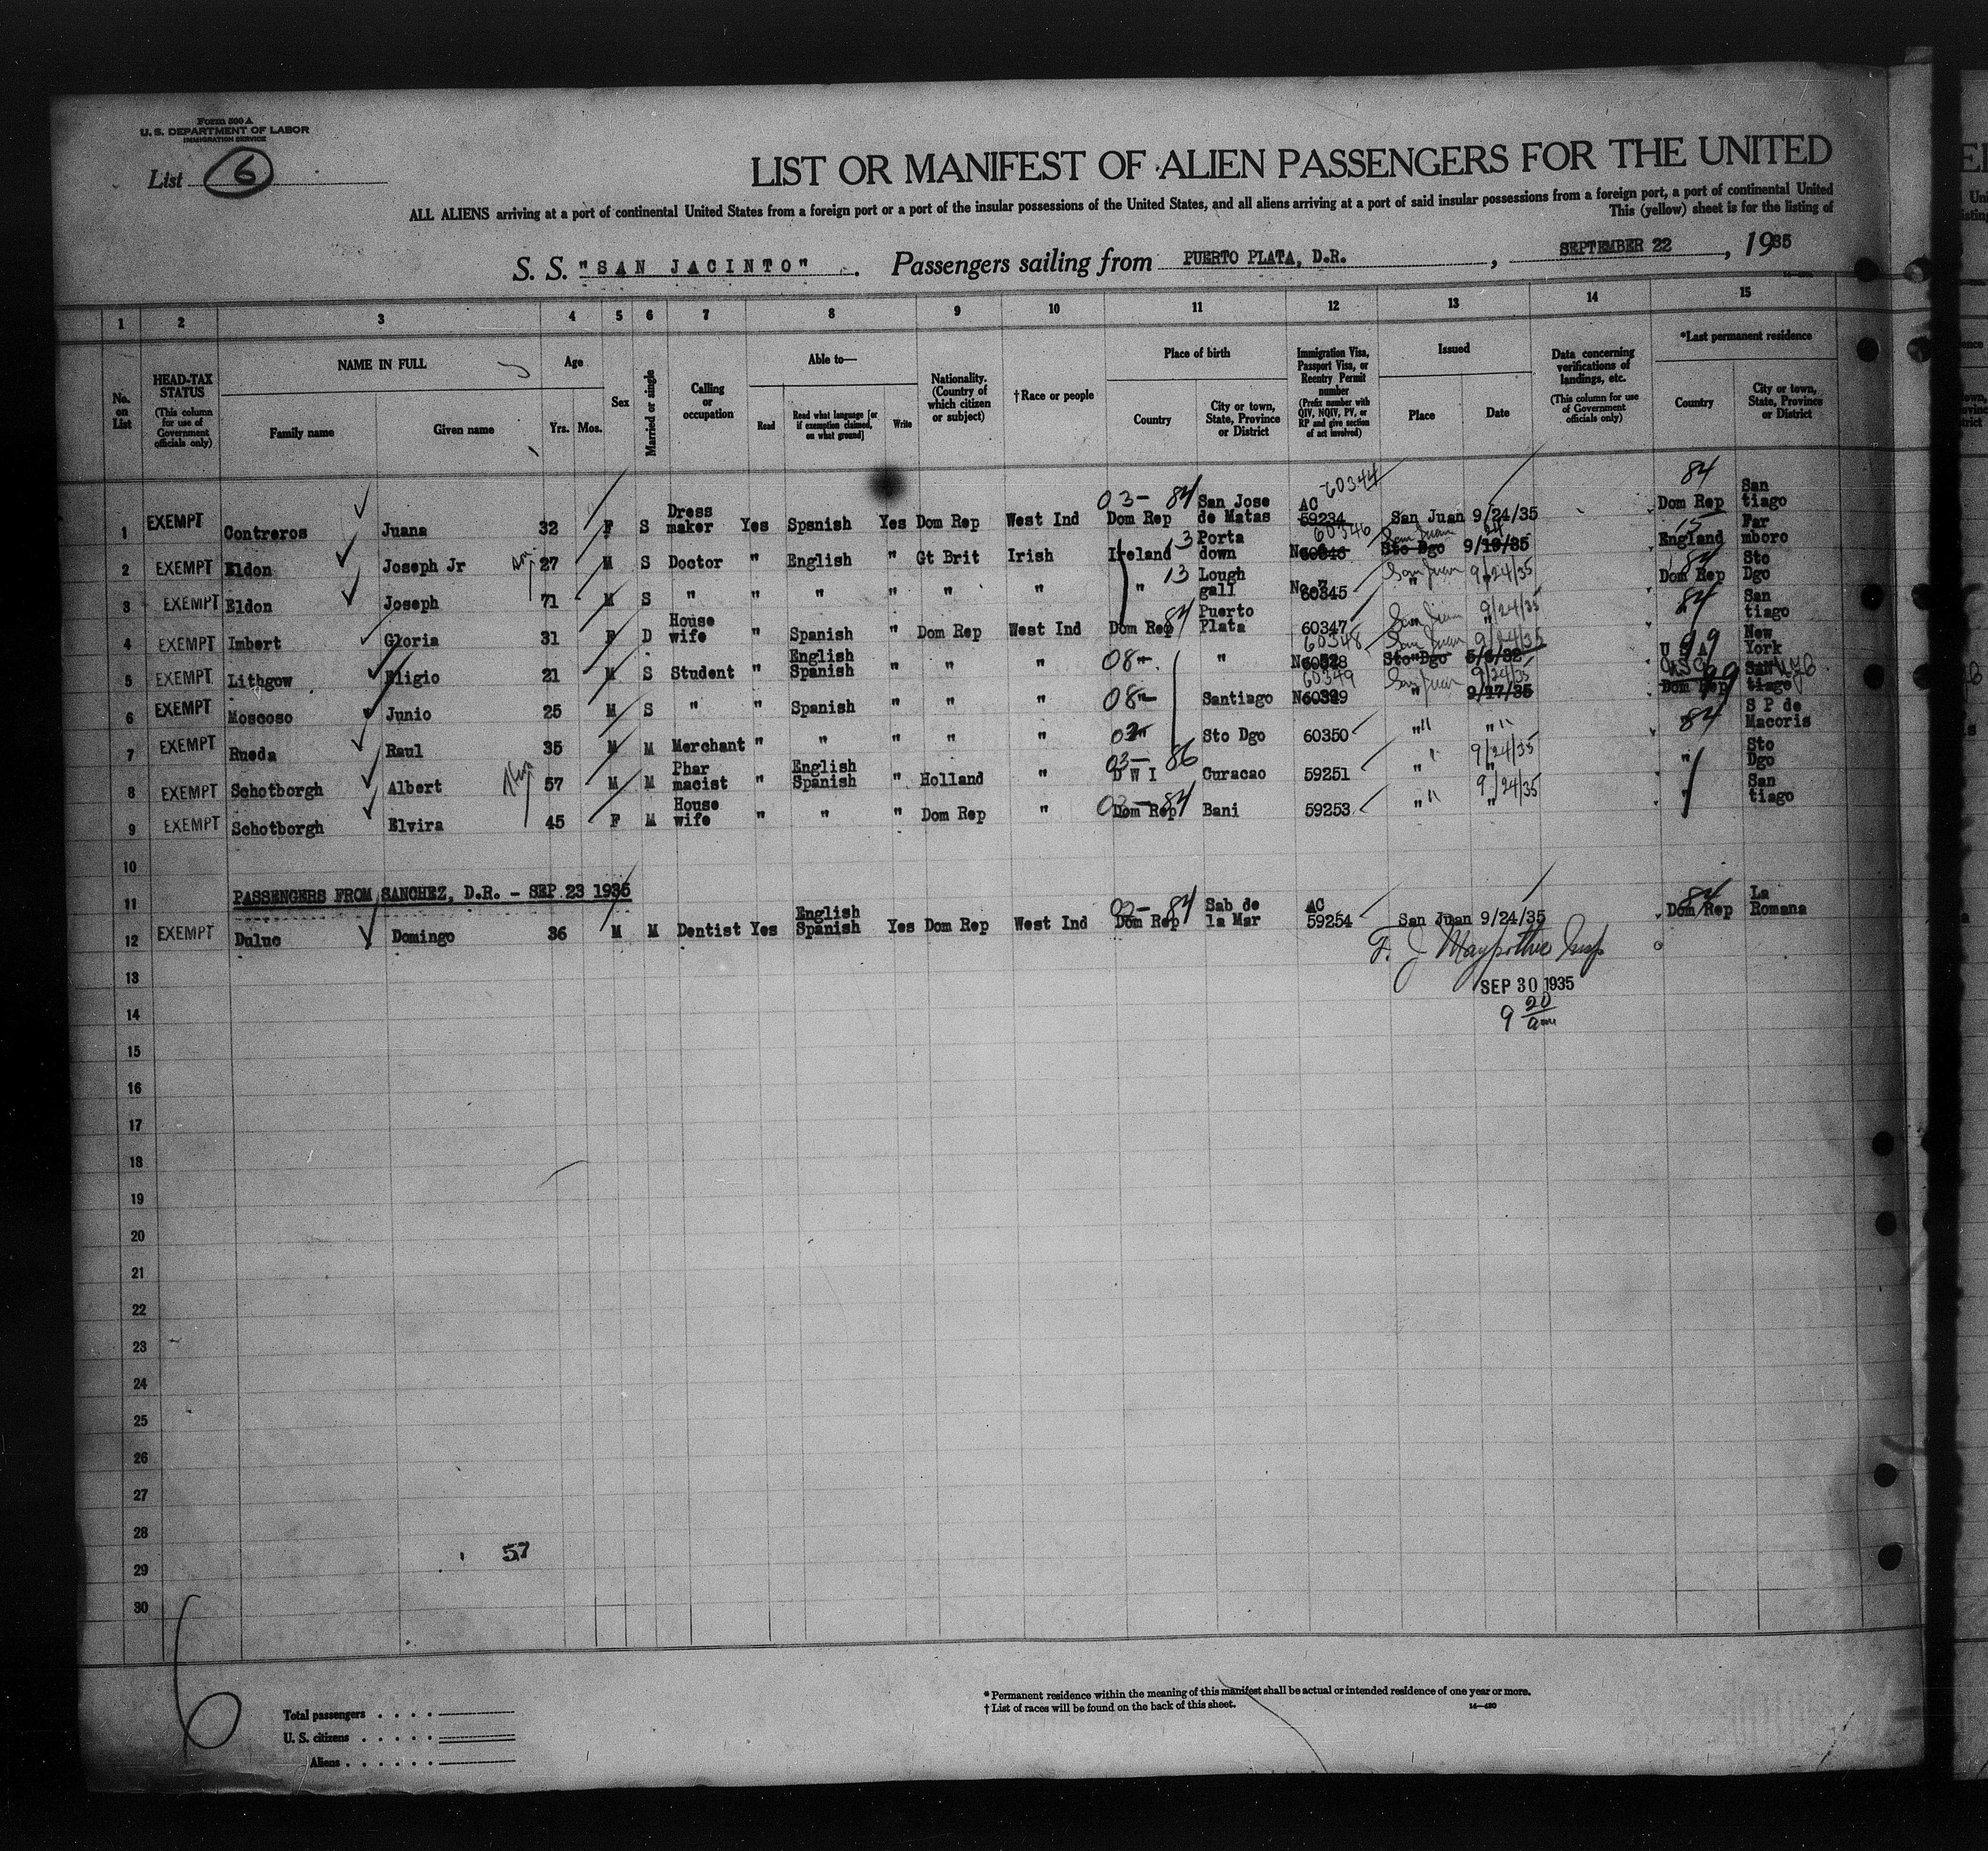 Form 500 A
U. S. DEPARTMENT OF LABOR
IMMIGRATION SERVICE
List 6
LIST OR MANIFEST OF ALIEN PASSENGERS FOR THE UNITED
ALL ALIENS arriving at a port of continental United States from a foreign port or a port of the insular possessions of the United States, and all aliens arriving at a port of said insular possessions from a foreign port, a port of continental United
This (yellow) sheet is for the listing of
S. S. "SAN JACINTO" . Passengers sailing from PUERTO PLATA, D.R. , SEPTEMBER 22 , 1935
1 2 3 4 5 6 7 8 9 10 11 12 13 14 15
No. on List
HEAD-TAX STATUS (This column for use of Government officials only)
NAME IN FULL
Family name Given name
Age
Yrs. Mos.
Sex
Married or single
Calling or occupation
Able to—
Read Read what language [or if exemption claimed, on what ground] Write
Nationality. (Country of which citizen or subject)
†Race or people
Place of birth
Country City or town, State, Province or District
Immigration Visa, Passport Visa, or Reentry Permit number (Prefix number with QIV, NQIV, PV, or RP and give section of act involved)
Issued
Place Date
Data concerning verifications of landings, etc. (This column for use of Government officials only)
*Last permanent residence
Country City or town, State, Province or District
1 EXEMPT Contreros Juana 32 F S Dress maker Yes Spsnish Yes Dom Rep West Ind 03- 84 Dom Rep San Jose de Matas AC 59234 60344 San Juan 9/24/35 84 Dom Rep San tiago
2 EXEMPT Eldon Joseph Jr 27 M S Doctor " English " Gt Brit Irish Ireland 13 Porta down 60346 San Juan Sto Dgo 9/19/35 24 15 England Far mboro
3 EXEMPT Eldon Joseph 71 M S " " " " " " " 13 Lough gall 60345 San Juan " 9/24/35 84 Dom Rep Sto Dgo
4 EXEMPT Imbert Gloria 31 F D House wife " Spanish " Dom Rep West Ind Dom Rep 84 Puerto Plata 60347 San Juan 9/24/35 84 " San tiago
5 EXEMPT Lithgow Eligio 21 M S Student " English Spanish " " " 08- " 60348 San Juan 9/24/35 Sto Dgo 5/6/32 U S A 99 New York
6 EXEMPT Moscoso Junio 25 M S " " Spanish " " " 08- Santiago 60349 San Juan 9/24/35 " 9/17/35 USA 99 Dom Rep San tiago NYC
7 EXEMPT Rueda Raul 35 M M Merchant " " " " " " Sto Dgo 60350 " " " " 84 S P de Macoris
8 EXEMPT Schotborgh Albert 57 M M Phar macist " English Spanish " Holland " 03- 86 D W I Curacao 59251 " " 9/24/35 " Sto Dgo
9 EXEMPT Schotborgh Elvira 45 F M House wife " " " Dom Rep " 03- 84 Dom Rep Bani 59253 " " 9/24/35 " San tiago
10
11 PASSENGERS FROM SANCHEZ, D.R. - SEP 23 1935
12 EXEMPT Duluc Domingo 36 M M Dentist Yes English Spanish Yes Dom Rep West Ind 03- 84 Dom Rep Sab de la Mar AC 59254 San Juan 9/24/35 84 Dom Rep La Romana
13
SEP 30 1935
14
9 20 am
15
16
17
18
19
20
21
22
23
24
25
26
27
28
57
29
30
6
*Permanent residence within the meaning of this manifest shall be actual or intended residence of one year or more.
†List of races will be found on the back of this sheet. 14—430
Total passengers . . . .
U. S. citizens . . . . .
Aliens . . . . . .